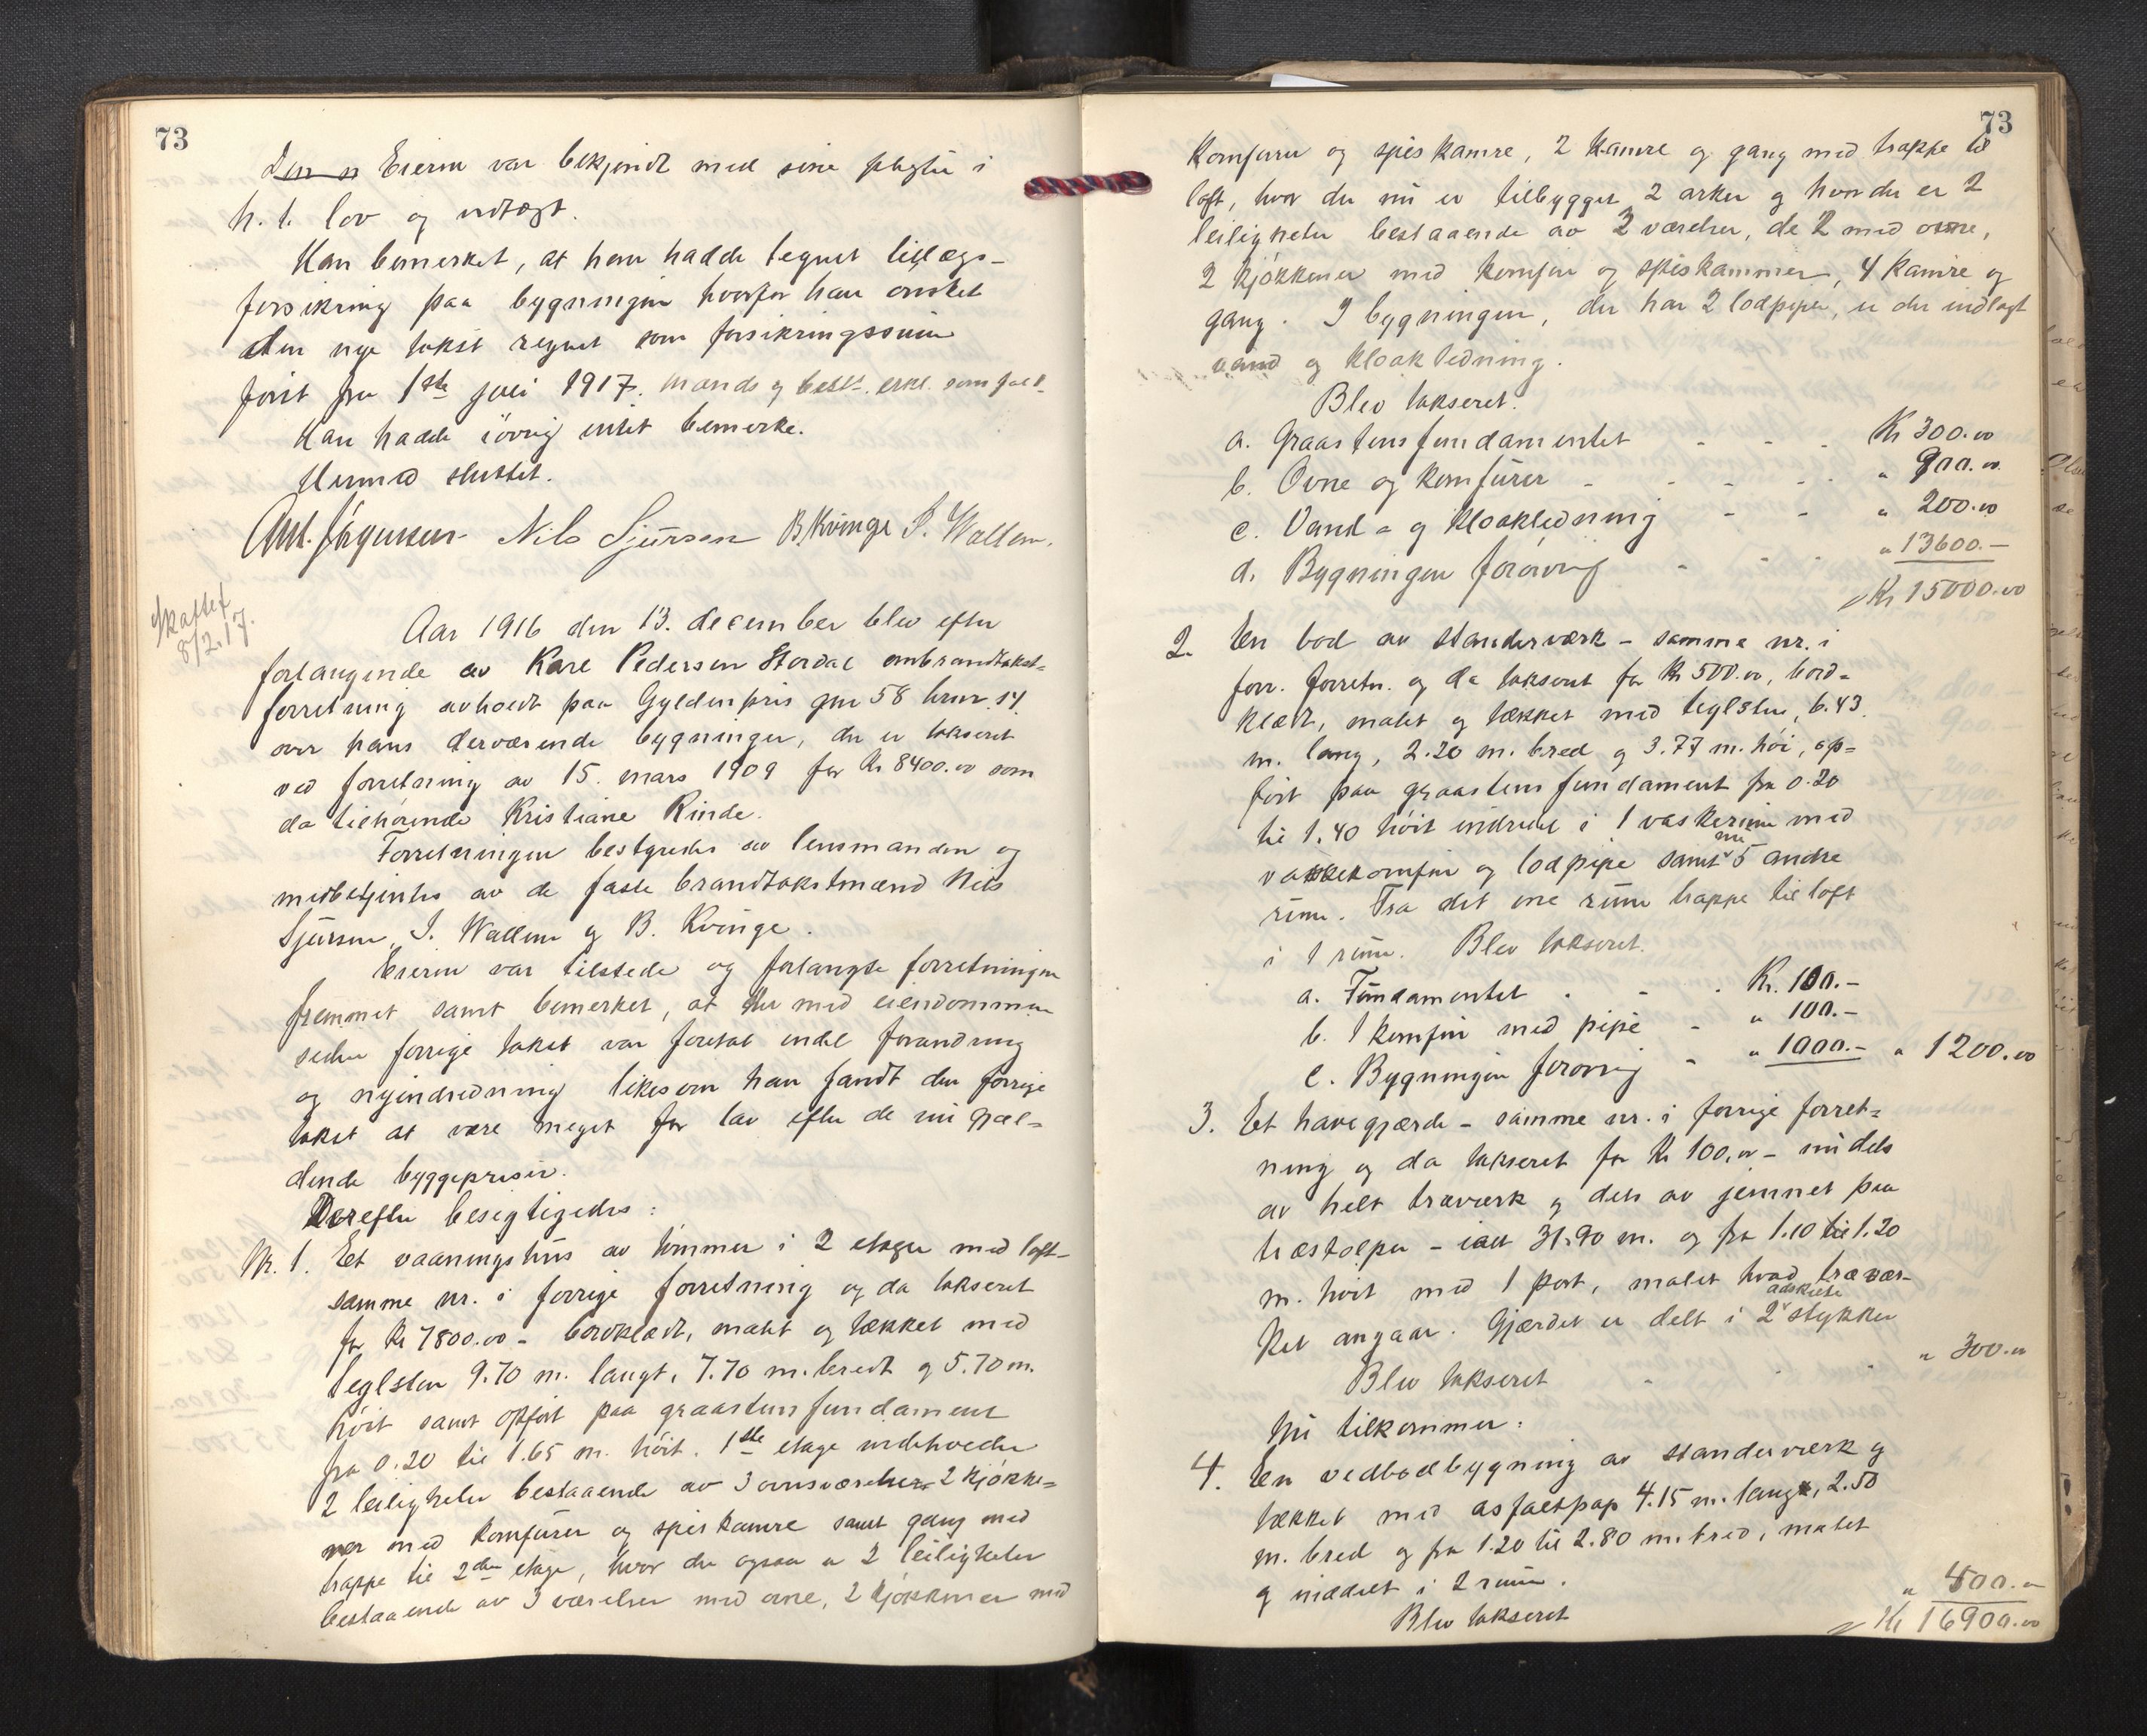 73
Eieren var bekjendt med sine plegter i
h. t. lov og vedtægt.
Han bemerket, at han hadde tegnet tillægs-
forsikring paa bygningen hvorfor han ønsket
den nye takst regnet som forsikringssum
først fra 1ste juli 1917. Mænds og best. erkl. som
Han hadde iøvrig intet bemerke.
Hermed sluttet.
Ant. Jörgensen Nils Sjursen B. Kvinge I. Wallem.
Skattet
8/2.17.
Aar 1916 den 13. december blev efter
forlangende av Karl Pedersen Stordal ombrandtakst-
forretning avholdt paa Gyldenpris gnr 58 brnr. 14
over hans derværende bygninger, der er takseret
ved forretning av 15. mars 1909 for Kr 8400.00 som
da tilhørende Kristiane Rinde.
Forretningen bestyredes av lensmanden og
medbetjentes av de faste brandtakstmænd Nils
Sjursen, I. Wallem og B. Kvinge.
Eieren var tilstede og forlangte forretningen
fremmet samt bemerket, at der med eiendommen
siden forrige takst var foretat endel forandring
og nyindredning likesom han fandt den forrige
takst at være meget for lav efter de nu gjæl-
dende byggepriser.
Derefter besigtigedes:
Nr. 1. Et vaaningshus av tømmer i 2 etager med loft-
samme nr. i forrige forretning og da takseret
for Kr 7800.00 - bordklædt, malet og tækket med
teglsten 9.70 m. langt, 7.70 m. bredt og 5.70 m.
høit samt opført paa graastensfundament
fra 0.20 til 1.65 m. høit. 1ste etage indeholder
2 leiligheter bestaaende av 3 ovnsværelser 2 kjøkke-
ner med komfurer og spiskamre samt gang med
trappe til 2den etage, hvor der ogsaa er 2 leiligheter
bestaaende av 3 værelser med ovne, 2 kjøkkener med
73
Komfurer og spiskamre, 2 kamre og gang med trappe til
loft, hvor der nu er tilbygget 2 arker og hvor der er 2
leiligheter bestaaende av 2 værelser, de 2 med ovne,
2 kjøkkener med komfur og spiskammer, 4 kamre og
gang. I bygningen, der har 2 lodpiper, er der indlagt
vand og kloakledning.
Blev takseret.
a. Graastensfundamentet - - - Kr 300.00
b. Ovne og komfurer - - - - - " 900.00
c. Vand- og kloakledning - - " 200.00
d. Bygningen forøvrig - - - " 13600.-
Kr 15000.00
2. En bod av standerværk - samme nr. i
forr. forretn. og da takseret for Kr 500.00, bord-
klædt, malet og tækket med teglsten, 6.43
m. lang, 2.20 m. bred og 3.77 m. høi, op-
ført paa graastensfundament fra 0.20
til 1.40 høit indredet i 1 vaskerum med
vaskekomfur og lodpipe samt nu 5 andre
rum. Fra det ene rum trappe til loft
i 1 rum. Blev takseret.
a. Fundamentet . - . Kr. 100.-
b. 1 komfur med pipe - " 100.-
c. Bygningen forøvrig - " 1000.- " 1200.00
3. Et havegjærde - samme nr. i forrige forret-
ning og da takseret for Kr 100.00 - nu dels
av helt træværk og dels av jernnet paa
træstolper - ialt 31.90 m. og fra 1.10 til 1.20
m. høit med 1 port, malet hvad trævær-
ket angaar. Gjærdet er delt i 2 adskilte stykker
Blev takseret - - - " 300.00
Nu tilkommer:
4. En vedbodbygning av standerværk og
tækket med asfaltpap 4.15 m. lang, 2.50
m. bred og fra 1.20 til 2.80 m. bred, malet
og inddelt i 2 rum.
Blev takseret " 400.00
Kr 16900.00